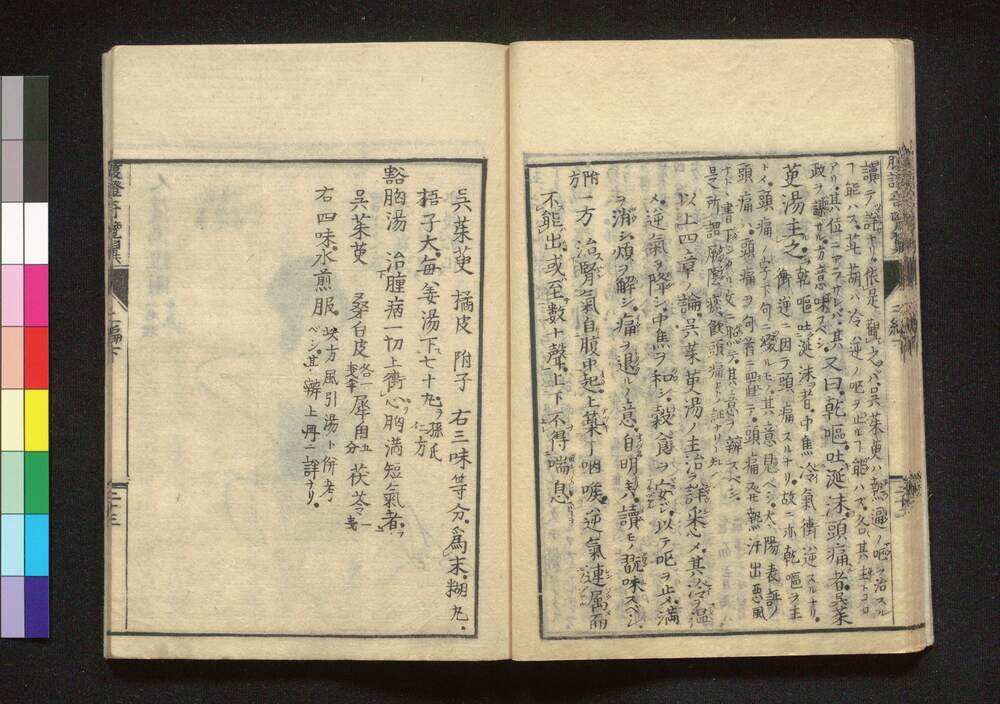 讀テ詳ナリ。依是觀之バ、呉茱萸ハ熱逼ノ嘔ヲ治スル
ヿ能ハス。茈胡ハ冷逆ノ嘔ヲ止ルヿ能ハズ。各其主トコロ
アリ。其位ニアラサレバ、其
政ヲ謀サル
又曰、乾嘔、吐涎沫、頭痛者、呉茱
萸湯主之。
乾嘔吐涎沫者、中焦冷氣衝逆スルナリ。
衝逆ニ因テ頭痛スルナリ。故ニ亦乾嘔ヲ主
トイ、頭痛ノ字下句ニ
其意思ベシ。太陽表証ノ
頭痛ハ頭痛ヲ句首ニ置テ、頭痛發熱汗出惡風
ナド、書下シタル文ニ照シテ、其意ヲ辨スベシ。
是所謂厥陰痰飲頭痛
以上四章ノ論、呉茱萸湯ノ主治ヲ詳悉メ、其冷ヲ温
メ、逆氣ヲ降シ、中焦ヲ和シ、穀食ヲ安シ、以テ嘔ヲ止メ、滿
ヲ消シ、煩ヲ解シ、痛ヲ退ルノ意、自明ナリ。讀モノ翫味スベシ。
附方
一方 治腎氣自腹中起、上築丁咽喉、逆氣連属而
不能出、或至数十聲、上下不得喘息。
呉茱萸 橘皮 附子 右三味等分、爲末、糊丸。
梧子大。每姜湯下七十丸。
孫氏
方
豁胸湯 治腫病一切上衝、心胸滿短氣者。
呉茱萸 桑白皮 各一戔 犀角 五分 茯苓 一戔
右四味、水煎服。
此方風引湯ト併考
ベシ。其辨上冊ニ詳ナリ。
二編下
二十三